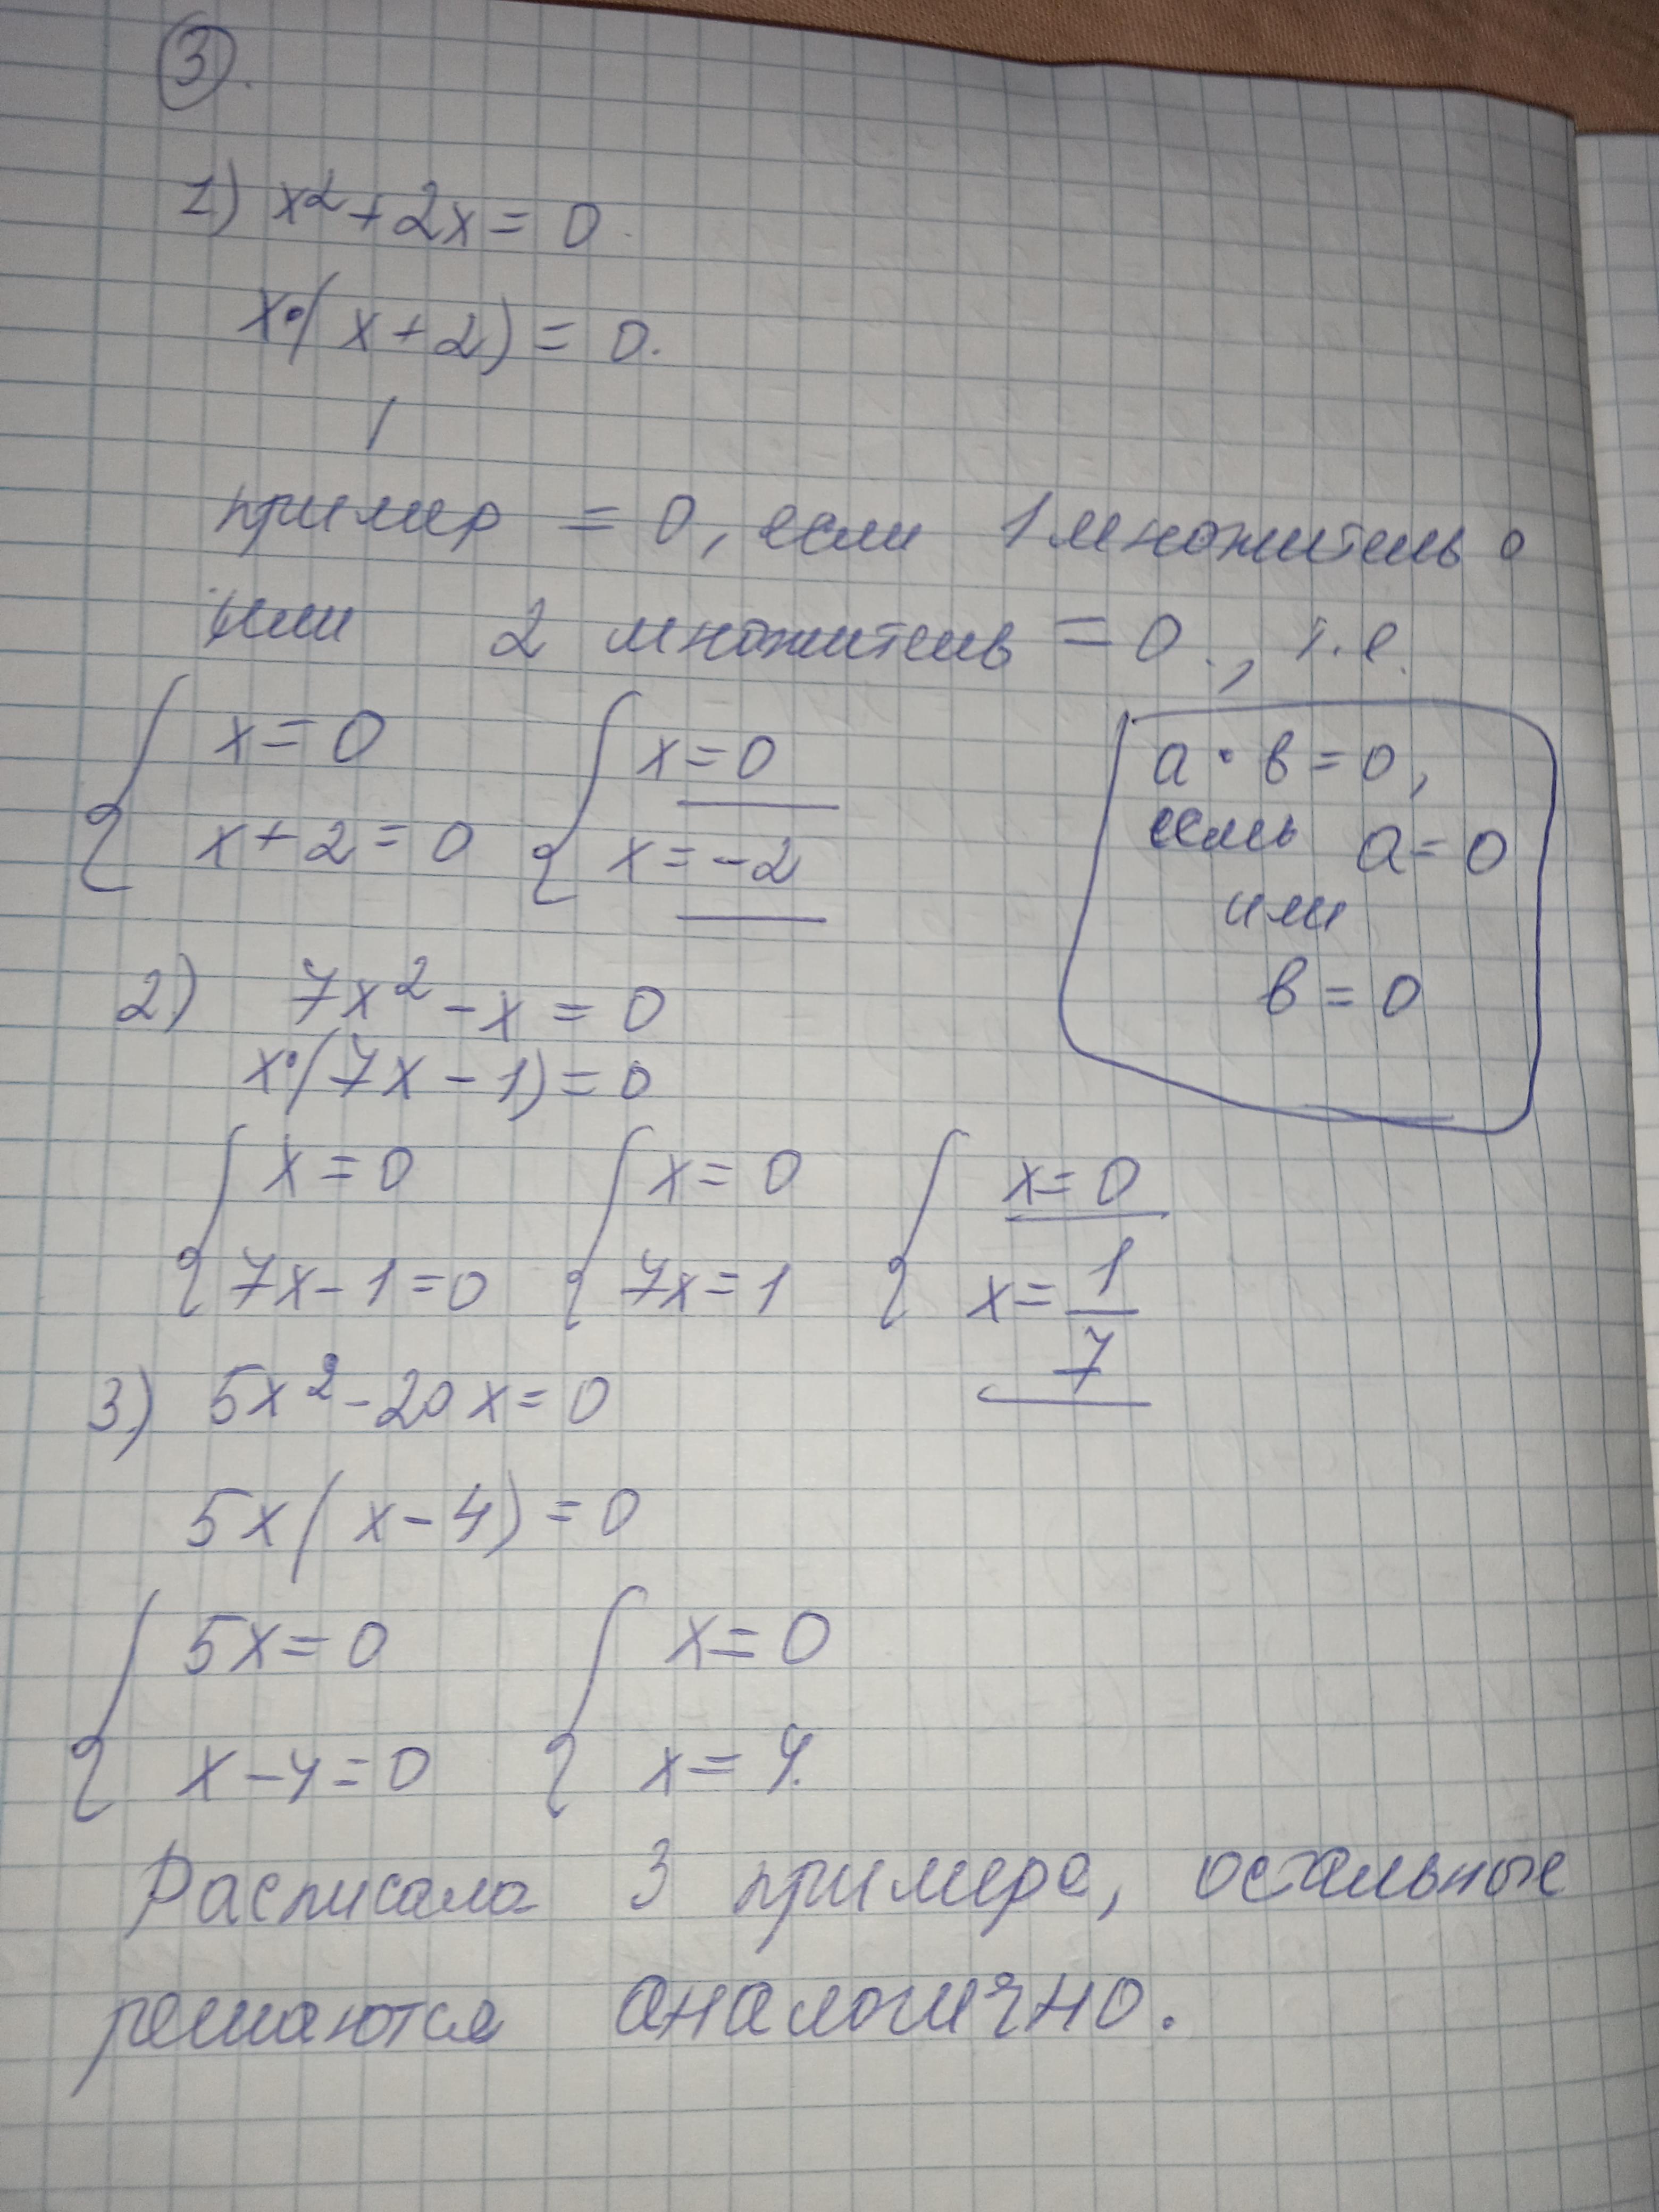 3.
1) x² + 2x = 0.
x•(x + 2) = 0.
пример = 0, если 1 множитель 0
или 2 множитель = 0., т.е.
{ x = 0 { x = 0
x + 2 = 0 x = -2
a • в = 0,
если a = 0
или
в = 0
2) 7x² - x = 0
x•(7x - 1) = 0
{ x = 0 { x = 0 { x = 0
7x - 1 = 0 7x = 1 x = 1/7
3) 5x² - 20x = 0
5x(x - 4) = 0
{ 5x = 0 { x = 0
x - 4 = 0 x = 4.
Расписала 3 примера, остальные
решаются аналогично.